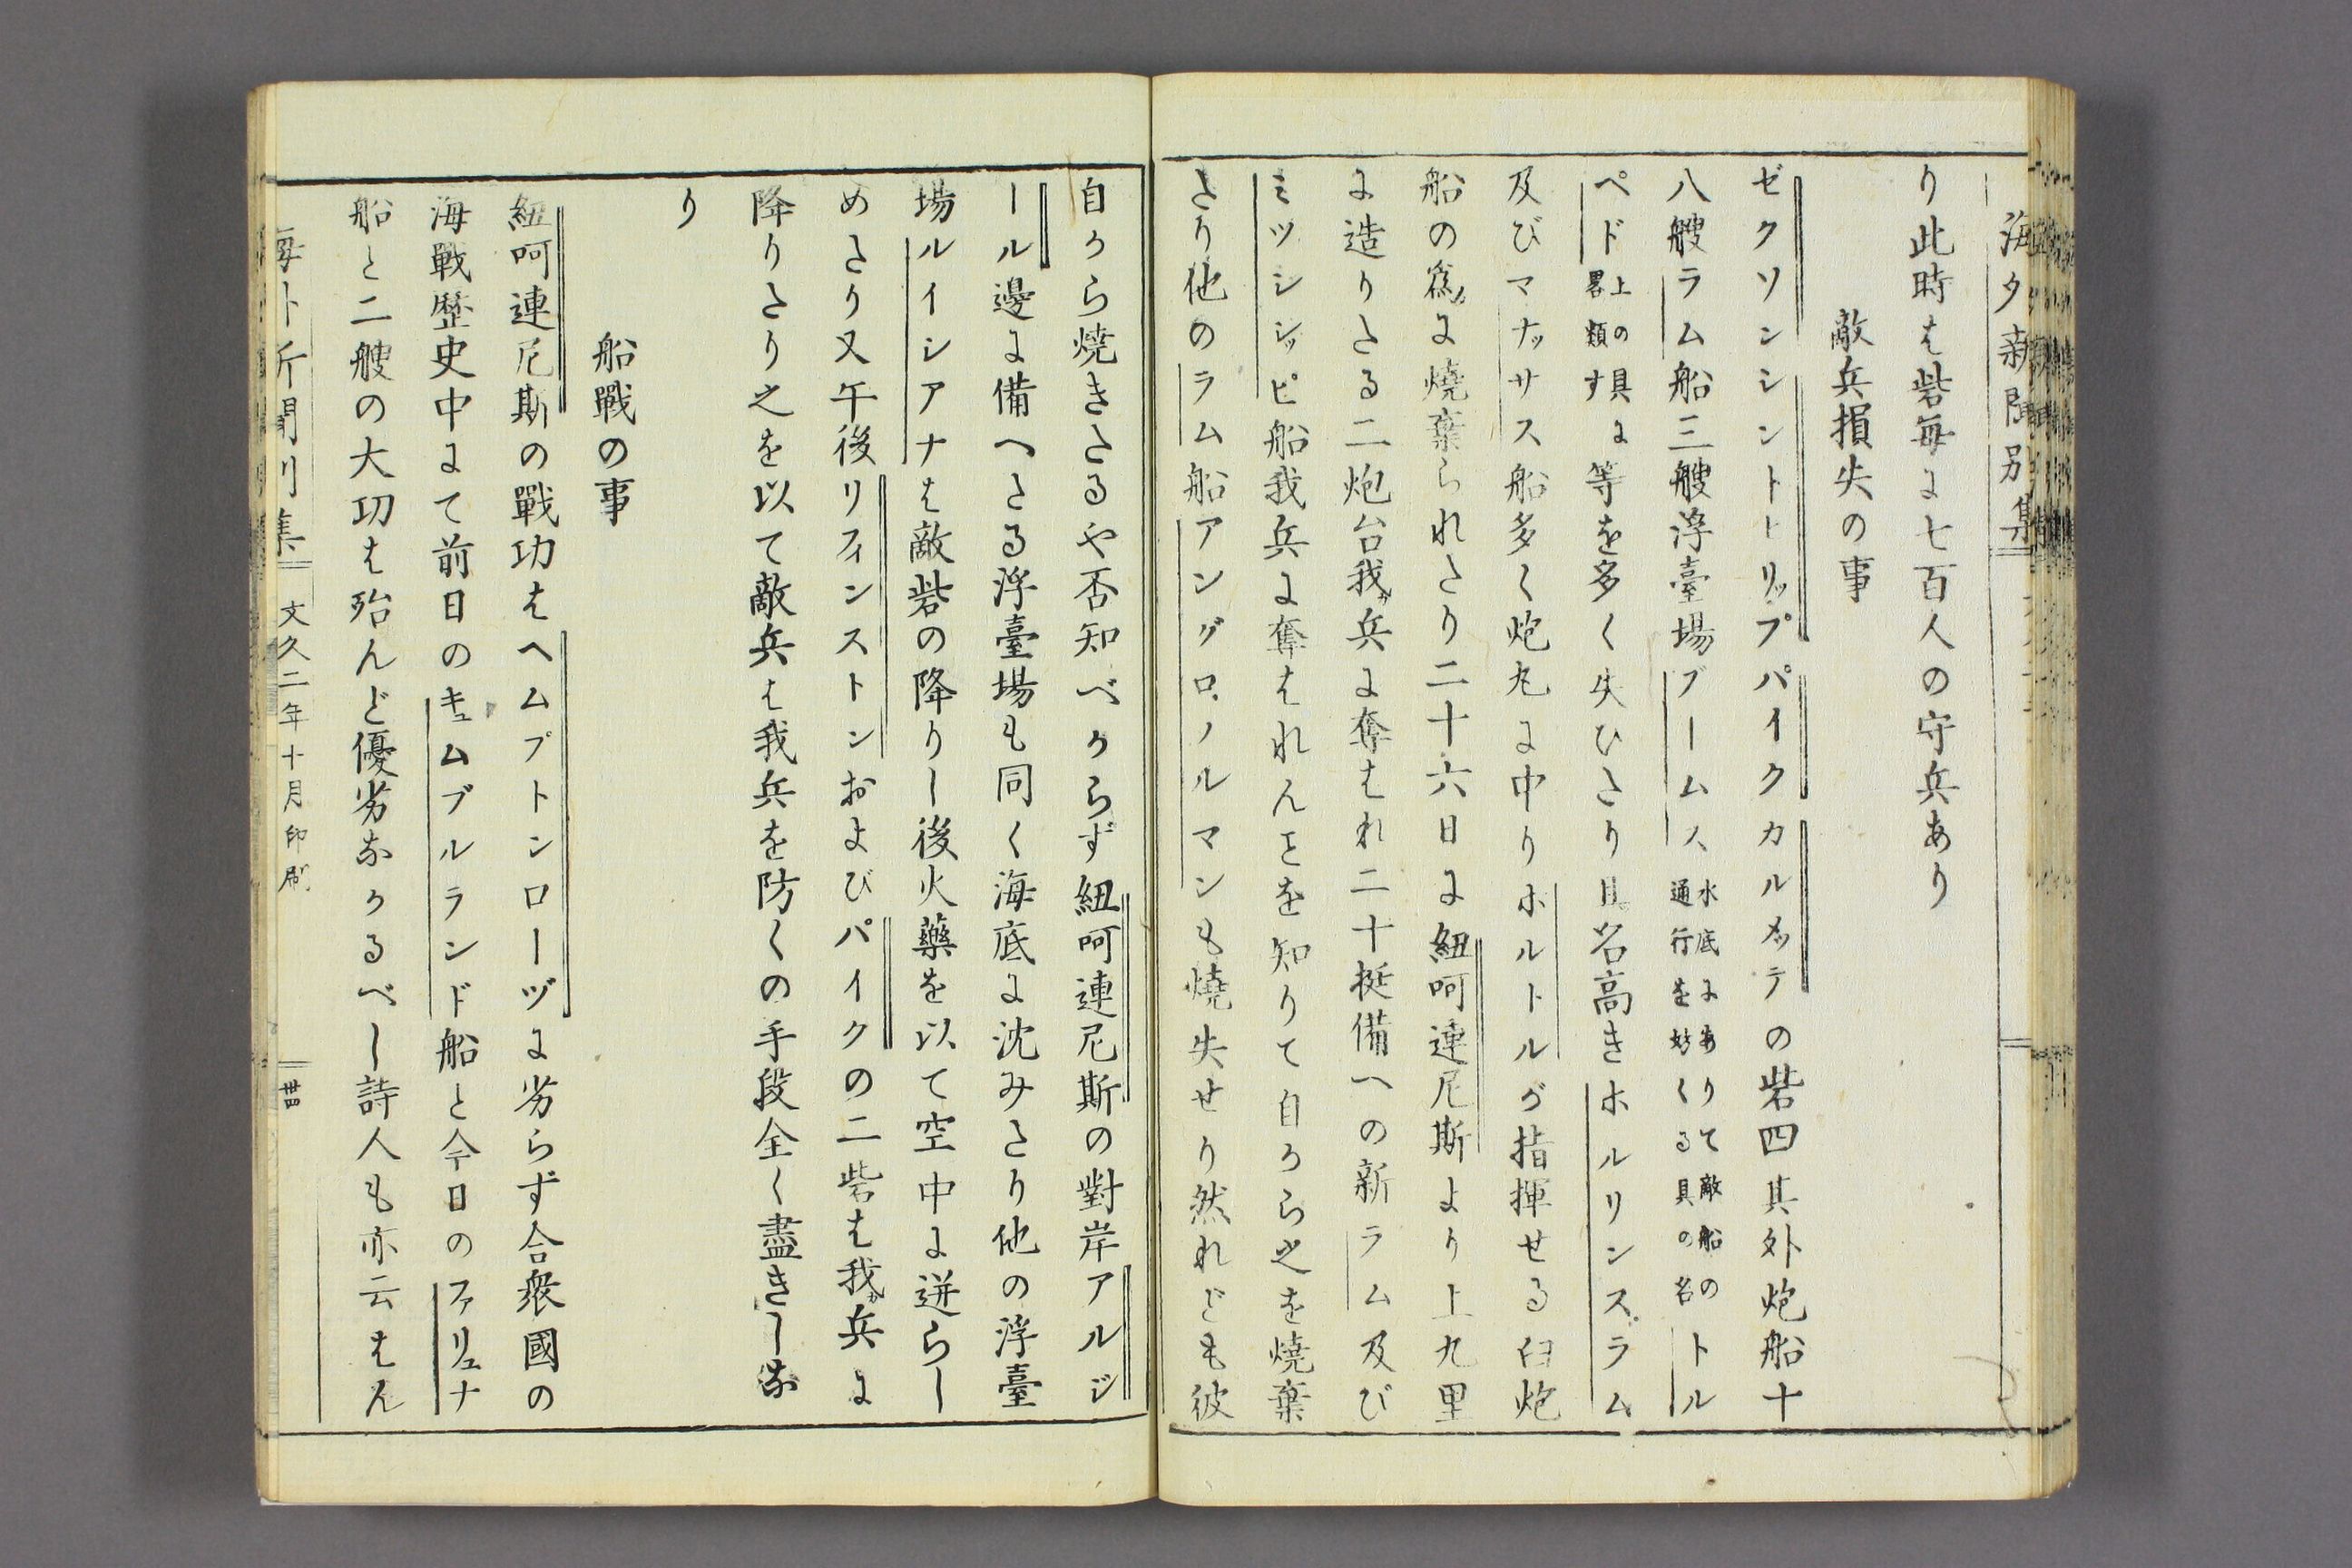 海外新聞別集
り此時は砦毎に七百人の守兵あり
敵兵損失の事
ゼクソンシントヒリップパイクカルメッテの砦四其外炮船十
八艘ラム船三艘浮臺場ブームス水底にありて敵船の通行を妨くる具の名トル
ペド上の具に畧類す等を多く失ひたり且名高きホルリンスラム
及びマナッサス船多く炮丸に中りホルトルが指揮せる臼炮
船の為めに焼棄られたり二十六日に紐呵連尼斯より上九里
に造りたる二炮台我が兵に奪はれ二十挺備への新ラム及び
ミッシシッピ船我兵に奪はれんとを知りて自から之を焼棄
たり他のラム船アングロノルマンも焼失せり然れども彼
自から焼きたるや否知べからず紐呵連尼斯の對岸アルジ
ール邊に備へたる浮臺場も同く海底に沈みたり他の浮臺
場ルイシアナは敵砦の降りし後火藥を以て空中に迸らし
めたり又午後リフィンストンおよびパイクの二砦は我が兵に
降りたり之を以て敵兵は我兵を防くの手段全く盡きしな
り
船戰の事
紐呵連尼斯の戰功はヘムプトンローヅに劣らず合衆國の
海戰歴史中にて前日のキュムブルランド船と今日のファリュナ
船と二艘の大功は殆んど優劣なかるべし詩人も亦云はん
海外新聞別集
文久二年十月印刷
卅四